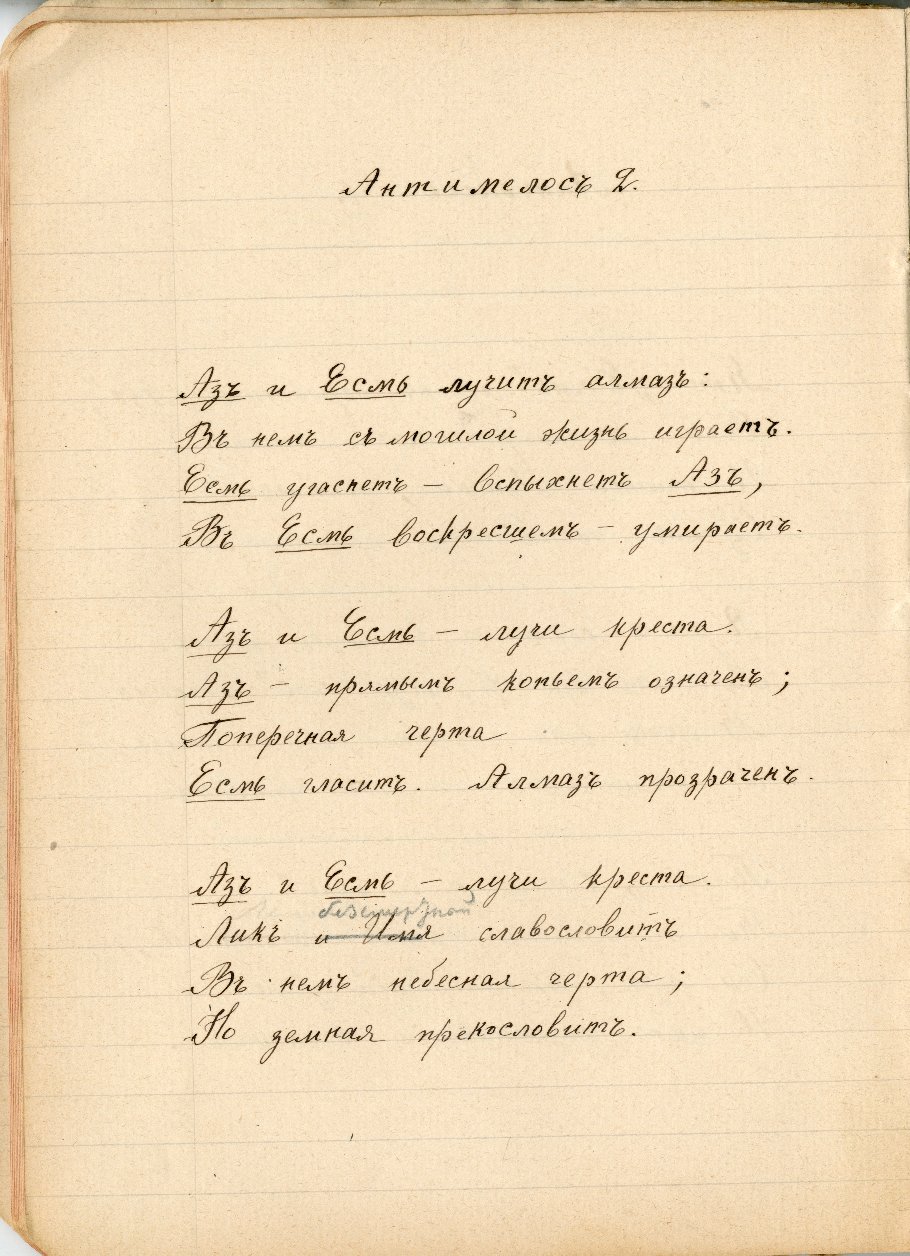 Антимелосъ 2.
Азъ и Есмь лучитъ алмазъ:
Въ немъ съ могилой жизнь играетъ.
Есмь угаснетъ – вспыхнетъ Азъ,
Въ Есмь воскресшемъ – умираетъ.
Азъ и Есмь – лучи креста.
Азъ – прямымъ копьемъ означенъ;
Поперечная черта
Есмь гласитъ. Алмазъ прозраченъ.
Азъ и Есмь – лучи креста.
Ликъ и Имя славословитъ
Въ немъ небесная черта;
Но земная прекословитъ.